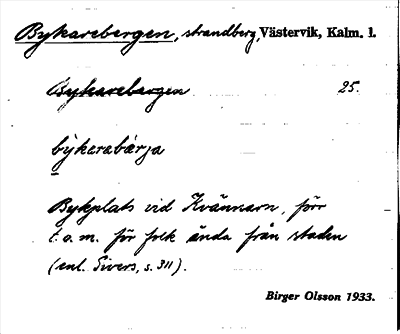 Bykarebergen, strandberg, Västervik, Kalm. l.
Bykarebergen 25.
bẏkerabärja
Bykplats vid Kvännarn, förr
t.o.m. för folk ända från staden
(enl. Sivers, s. 311).
Birger Olsson 1933.